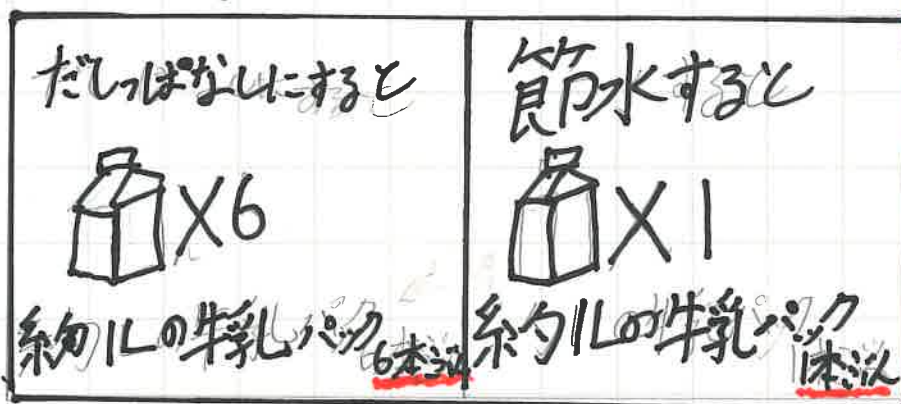 だしっぱなしにすると
×6
約1Lの牛乳パック
6本ぶん
節水すると
×1
約1Lの牛乳パック
1本ぶん